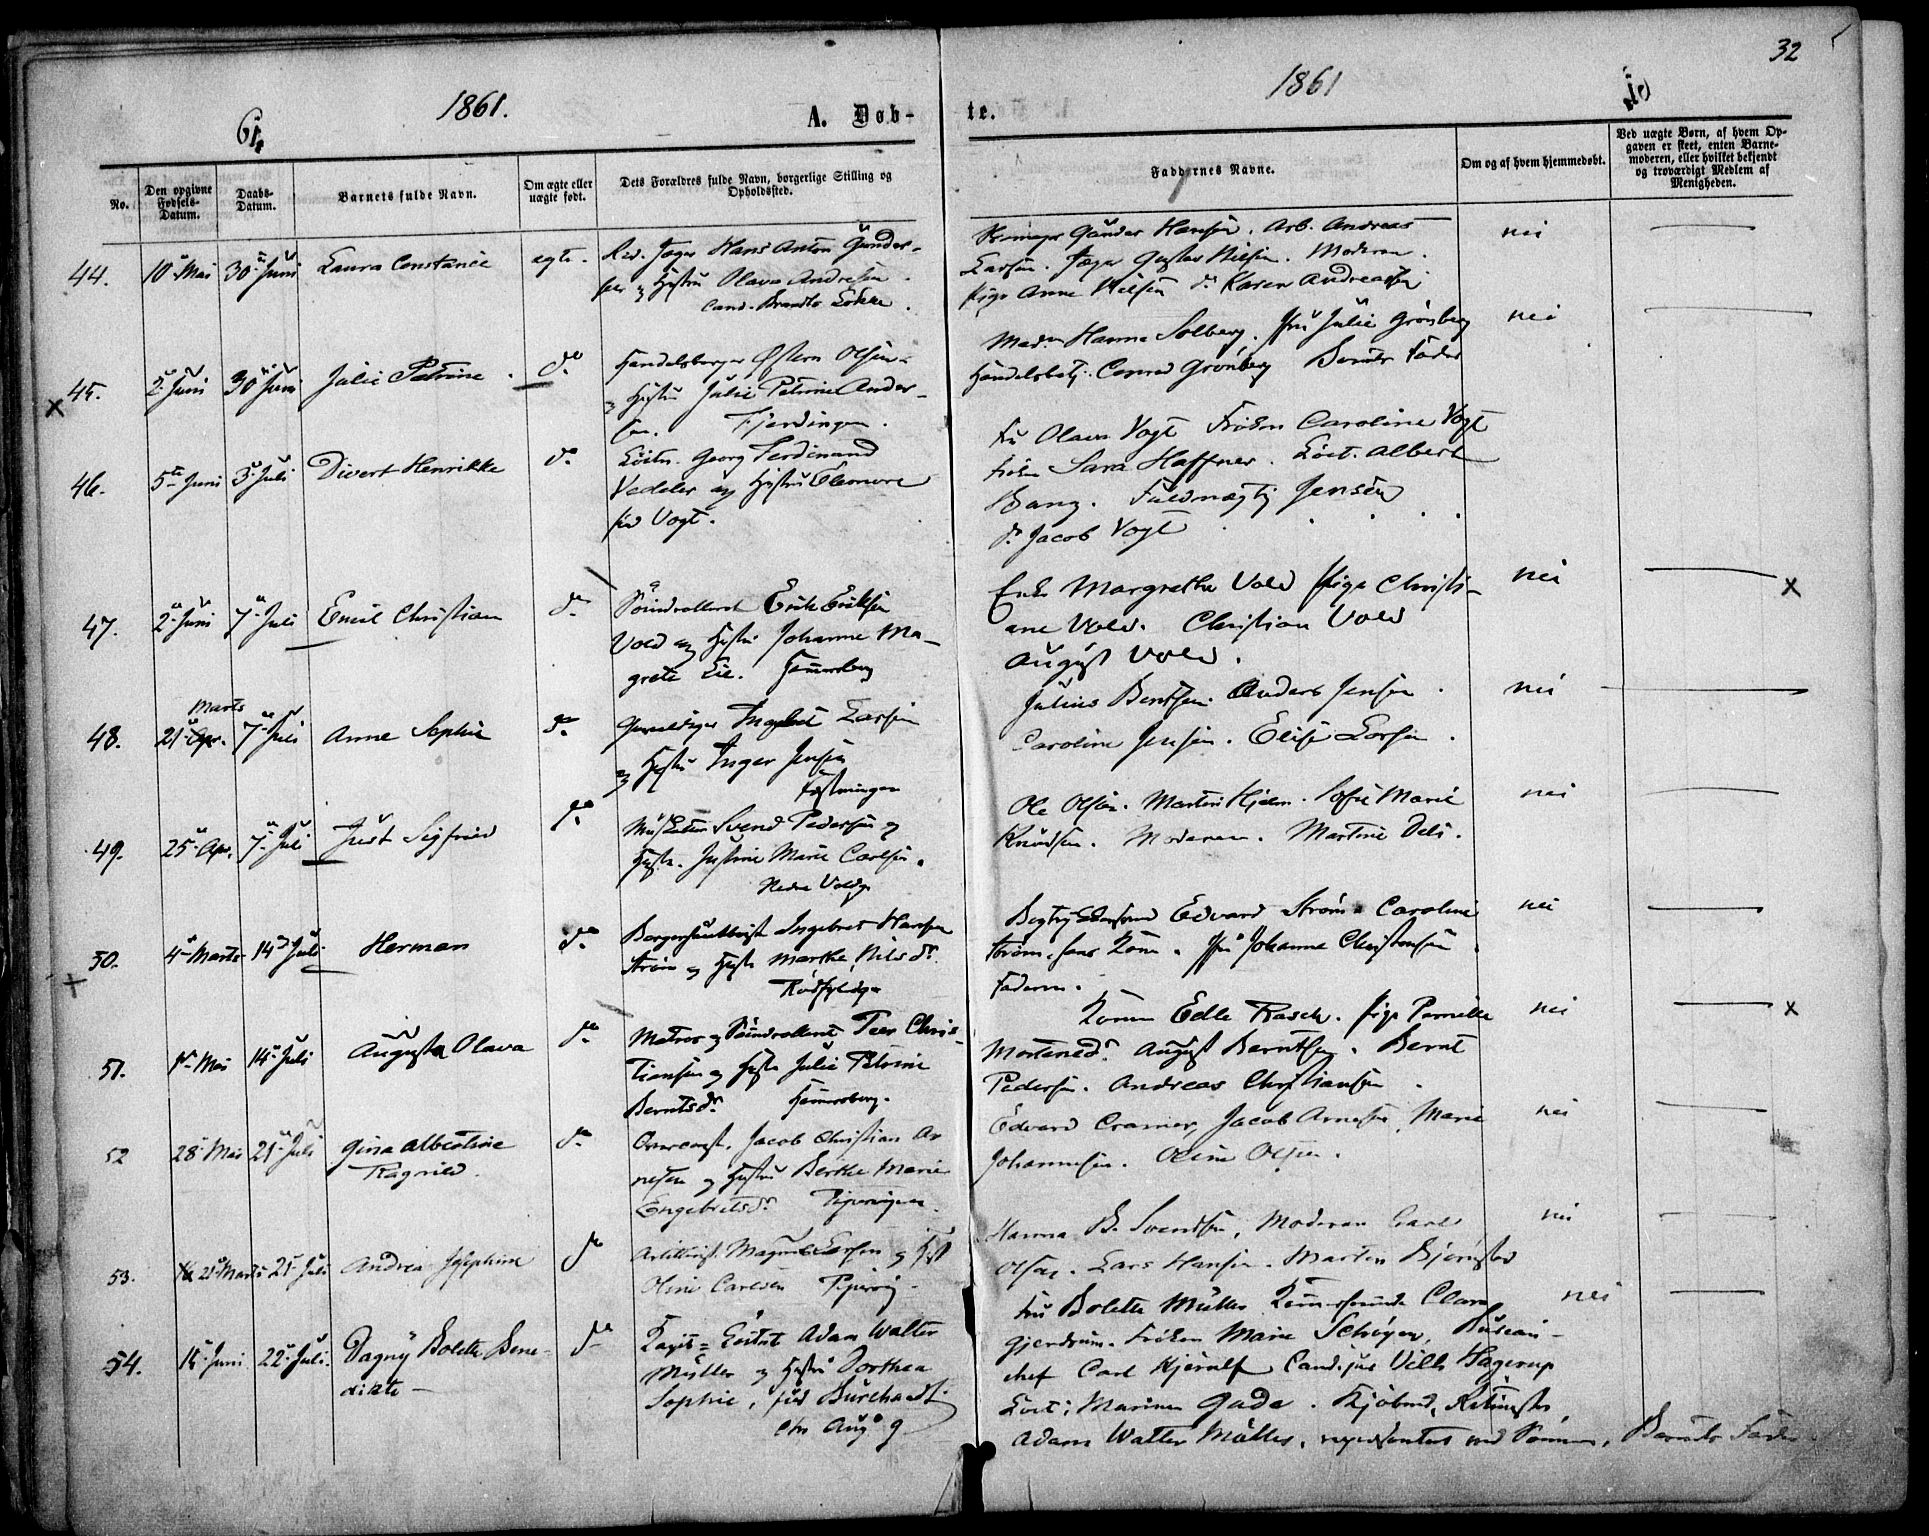 32
1861.
1861
A. Døb-
te.
No.
Den opgivne Fødsels-Datum.
Daabs-Datum.
Barnets fulde Navn.
Om ægte eller uægte født.
Dets Forældres fulde Navn, borgerlige Stilling og Opholdssted.
Faddernes Navne.
Om og af hvem hjemmedøbt.
Ved uægte Børn, af hvem Opgaven er skeet, enten Barnemoderen, eller hvilket bekjendt og troværdigt Medlem af Menigheden.
44. 10 Mai 30 Juni Laura Constance ægte.
Jæger Hans Anton Gunder-
sen og Hustru Olava Andresen
Løkke.
Gunder Hansen. Arb. Andreas
Larsen. Jæger Gustav Nilsen. Moderen.
Pige Anne Nilsen do Karen Andreassen
nei
45. 2 Juni 30 Juni Julie Petrine. do
Handelsborger Østen Olsen
og Hustru Julie Petrine Ander-
sen. Fjerdingen.
Mad. Hanna Solberg. Julie Grønberg
Handelsbetj. Conrad Grønberg Barnets Fader
nei
46. 5te Juni 3 Juli Divert Henrikke do
Löitn. Georg Ferdinand
Vedeler og Hustru Eleonore
fød Vogt.
Fru Olava Vogt Frøken Caroline Vogt
Frøken Sara Haffner. Löit. Albert
Bang. Fuldmægtig Jensen
do Jacob Vogt
47. 2 Juni 7 Juli Emil Christian do
Søindrolleret Erik Eriksen
Vold og Hustru Johanne Ma-
grete Lie. Hammersborg
Enke Margrethe Vold Pige Christi-
ane Vold. Christian Vold
August Vold.
nei
Marts
48. 21 Apr. 7 Juli Anne Sophie do
Ingebret Larsen
og Hustru Inger Jensen
Fæstningen
Julius Berntsen. Anders Jensen.
Caroline Jensen. Elise Larsen.
nei
49. 25 Apr. 7 Juli Just Sigfried do
Musketer Svend Pedersen og
Hustr. Justine Marie Carlsen.
Nedre Voldg.
Ole Olsen. Martin Hjelm. Sofie Marie
Knudsen. Moderen. Martine Dels.
nei
50. 4 Marts 14 Juli Herman do
Ingebret Hansen
Strøm og Hustr Marthe Nilsdr.
Rødfyldgn
Edvard Strøm Caroline
Strøm, hans Kone. Johanne Christensen
Faderen.
nei
51. Mai 14 Juli Augusta Olava do
Matros og Søindrolleret Peer Chris-
tiansen og Hustr Julie Petrine
Berntsdr. Hammersborg.
Konen Edle Rasch. Pige Pernille
Mortensdr. August Berntsen. Bernt
Pedersen. Andreas Christiansen.
nei
52 28 Mai 21 Juli Gina Albertine
Ragnild. do
Jacob Christian Ar-
nesen og Hustru Berthe Marie
Engebretsdr. Pipervigen.
Edvard Cramer, Jacob Arnesen, Marie
Johannesen. Oline Olsen.
nei
53. 25 Marts 21 Juli Andrea Josephine do
Artillerist Magnus Larsen og Hust
Oline Carlsen Pipervig.
Hanna B. Svendsen, Moderen Carl
Olsen. Lars Hansen. Marten Bjørnstad
nei
54. 15 Juni 22 Juli. Dagny Bolette Bene-
dikte do
Löitnt Adam Walter
Müller og Hustru Dorthea
Sophie, fød Burchardt.
Chr Aug g
Fru Bolette Müller Clara
Gjerdrum. Frøken Marie Schøyen, Bureau-
chef Carl Kjerulf Cand. jur Vilh. Hagerup
Löit. i Marinen Gade. Kjøbmd.
Adam Walter Müller, repræsenteret ved Sønnen, Barnets Fader
nei